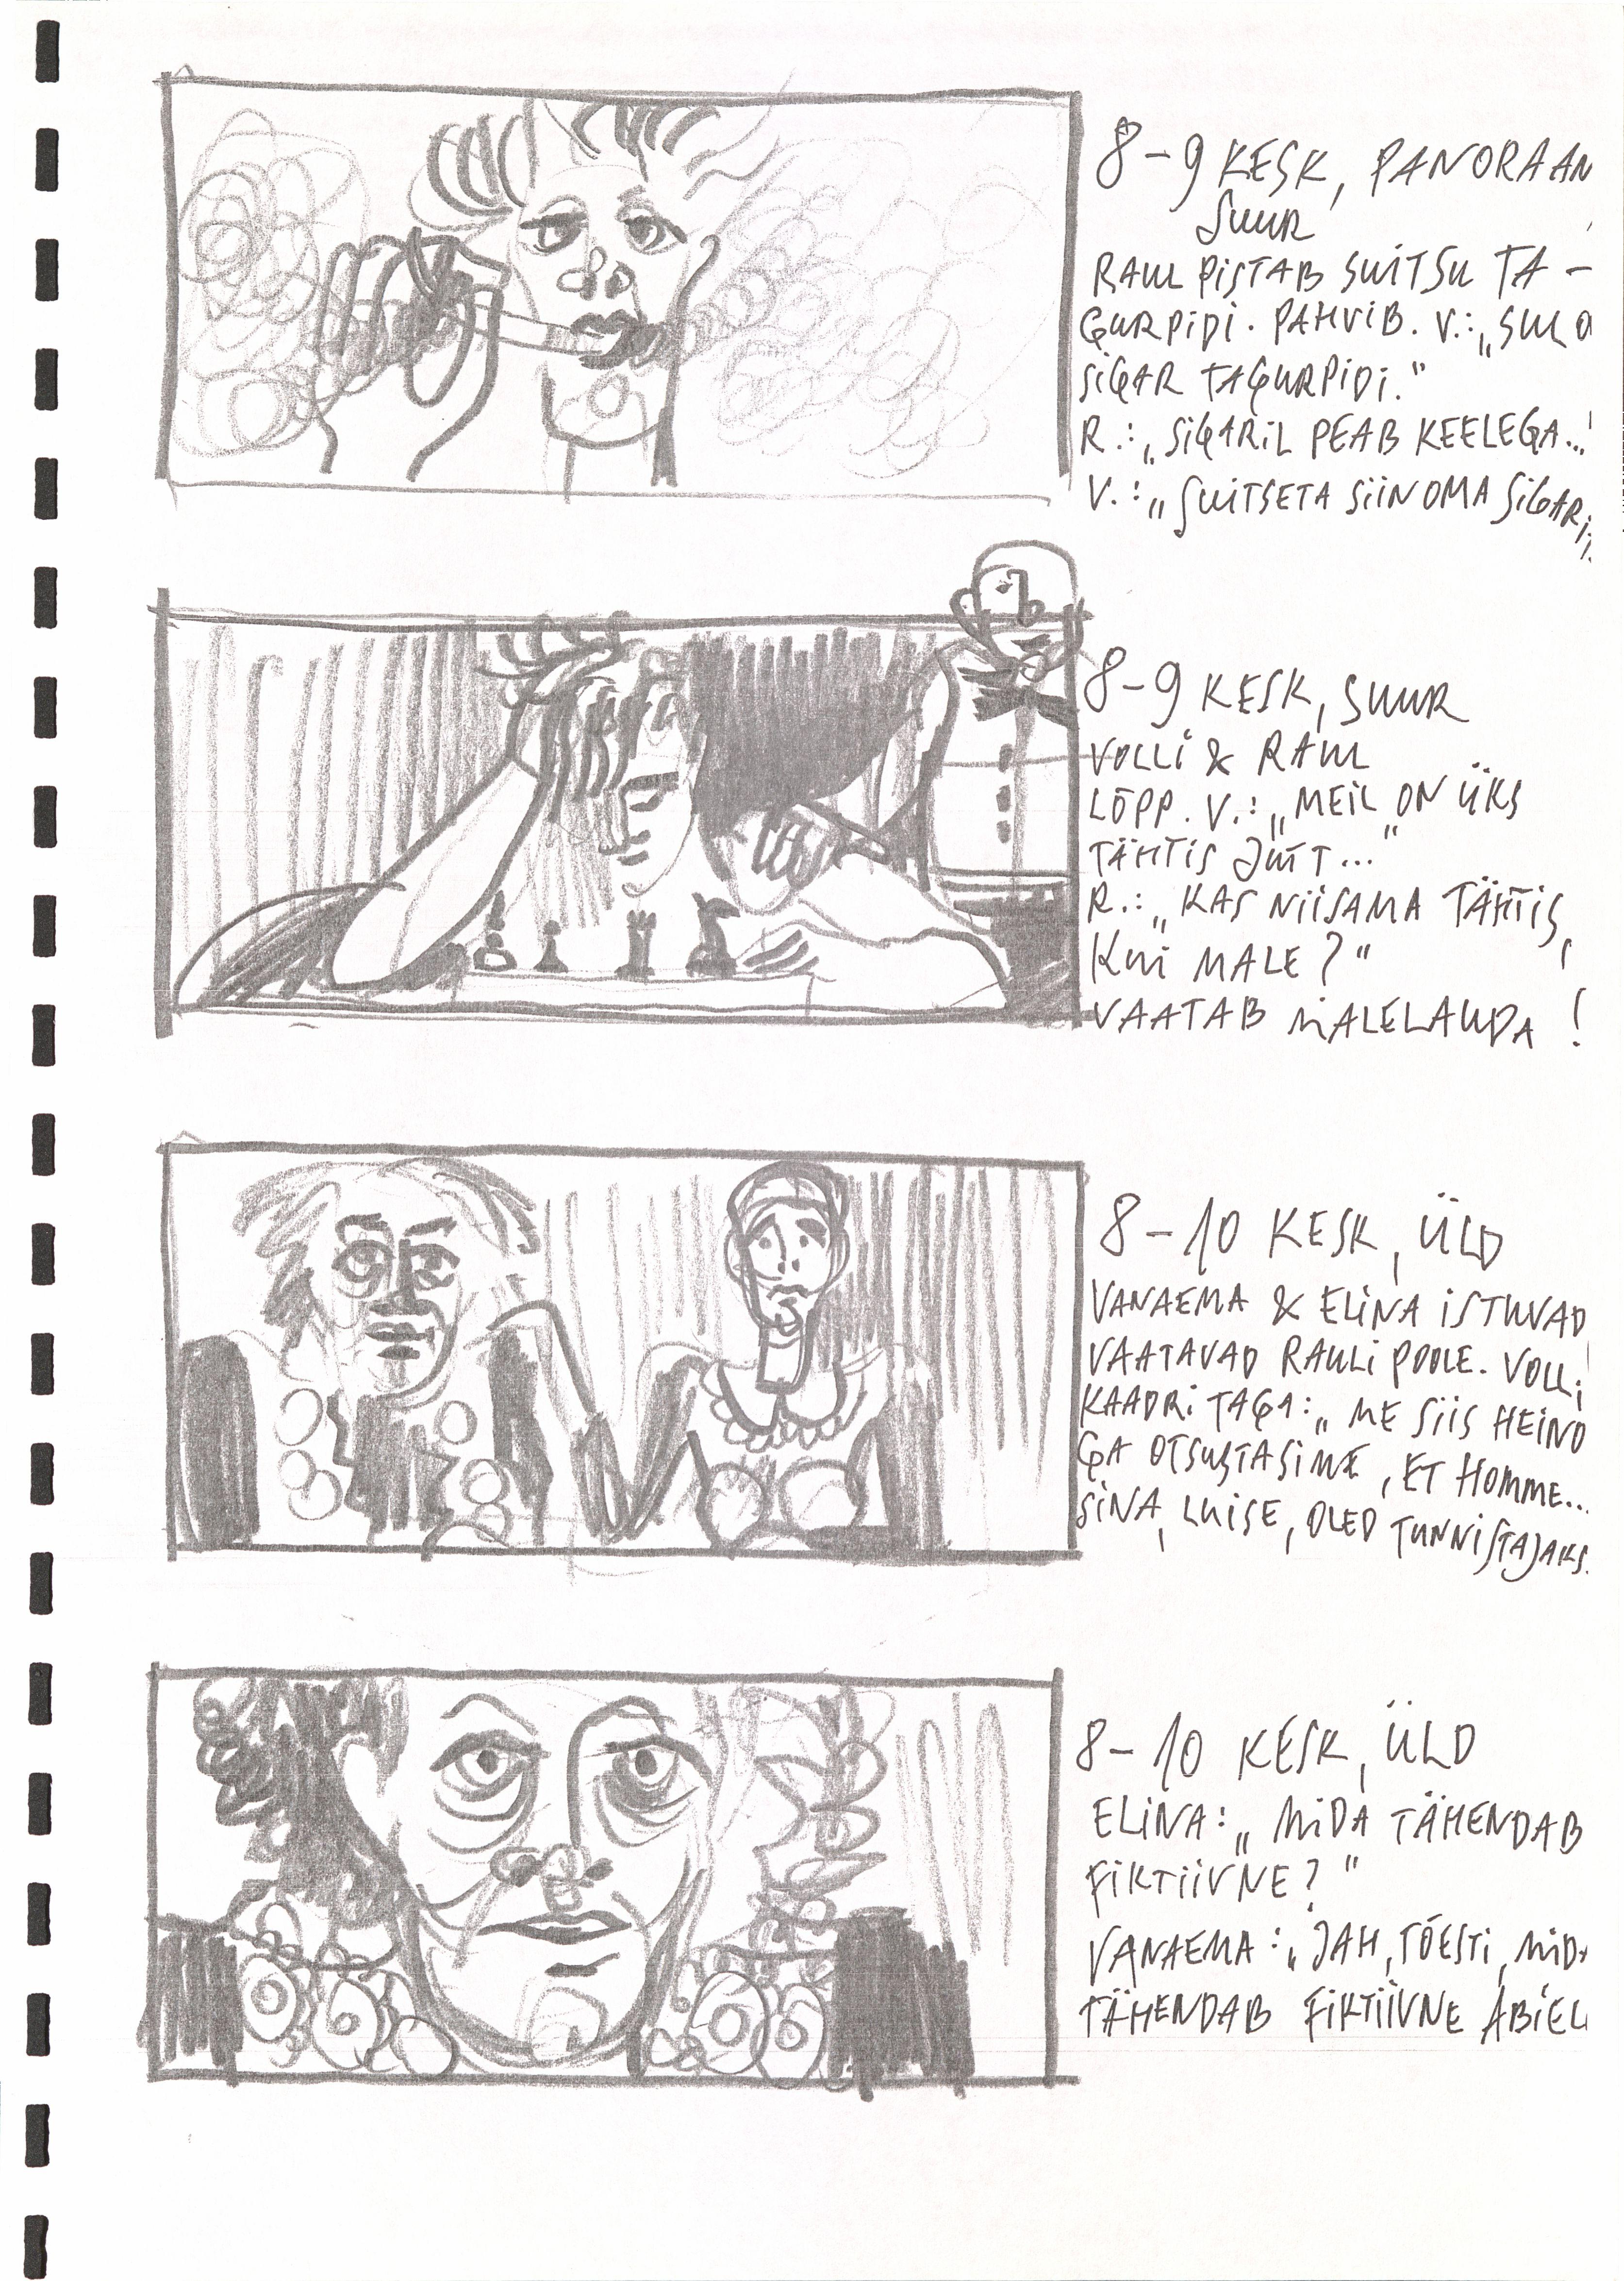 8-9 KESK, PANORAAM
SUUR
RAUL PISTAB SUITSU TA-
GURPIDI. PAHVIB. V.: „SUL O
SIGAR TAGURPIDI."
R.: „SIGARIL PEAB KEELEGA..!
V.: „SUITSETA SIIN OMA SIGARI
8-9 KESK, SUUR
VOLLI & RAUL
LÕPP. V.: „MEIL ON ÜKS
TÄHTIS JUTT..."
R.: „KAS NIISAMA TÄHTIS,
KUI MALE?"
VAATAB MALELAUDA!
8-10 KESK, ÜLD
VANAEMA & ELINA ISTUVAD
VAATAVAD RAULI POOLE. VOLLI
KAADRI TAGA: „ME SIIS HEINO
GA OTSUSTASIME, ET HOMME...
SINA, LUISE, OLED TUNNISTAJAKS.
8-10 KESK, ÜLD
ELINA: „MIDA TÄHENDAB
FIKTIIVNE?"
VANAEMA: „JAH, TÕESTI, MIDA
TÄHENDAB FIKTIIVNE ABIEL